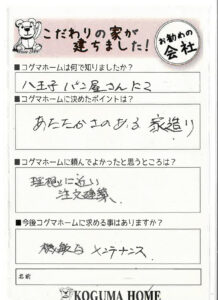 こだわりの家が
建ちました！
お勧めの
会社
■コグマホームは何で知りましたか？
八王子パン屋さんにて
■コグマホームに決めたポイントは？
あたたかさのある 家造り
■コグマホームに頼んでよかったと思うところは？
理想に近い
注文建築
■今後コグマホームに求める事はありますか？
機敏な メンテナンス
名前
KOGUMA HOME